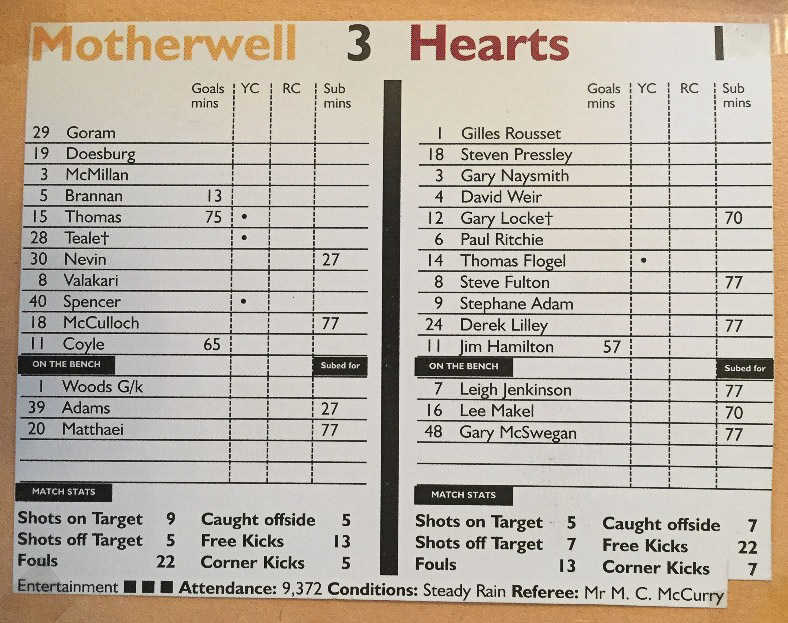 Motherwell 3 Hearts 1
Goals mins YC RC Sub mins
29 Goram
19 Doesburg
3 McMillan
5 Brannan 13
15 Thomas 75 •
28 Teale† •
30 Nevin 27
8 Valakari
40 Spencer •
18 McCulloch 77
11 Coyle 65
ON THE BENCH Subed for
1 Woods G/k
39 Adams 27
20 Matthaei 77
MATCH STATS
Shots on Target 9 Caught offside 5
Shots off Target 5 Free Kicks 13
Fouls 22 Corner Kicks 5
Goals mins YC RC Sub mins
1 Gilles Rousset
18 Steven Pressley
3 Gary Naysmith
4 David Weir
12 Gary Locke† 70
6 Paul Ritchie
14 Thomas Flogel •
8 Steve Fulton 77
9 Stephane Adam
24 Derek Lilley 77
11 Jim Hamilton 57
ON THE BENCH Subed for
7 Leigh Jenkinson 77
16 Lee Makel 70
48 Gary McSwegan 77
MATCH STATS
Shots on Target 5 Caught offside 7
Shots off Target 7 Free Kicks 22
Fouls 13 Corner Kicks 7
Entertainment ■ ■ ■ Attendance: 9,372 Conditions: Steady Rain Referee: Mr M. C. McCurry